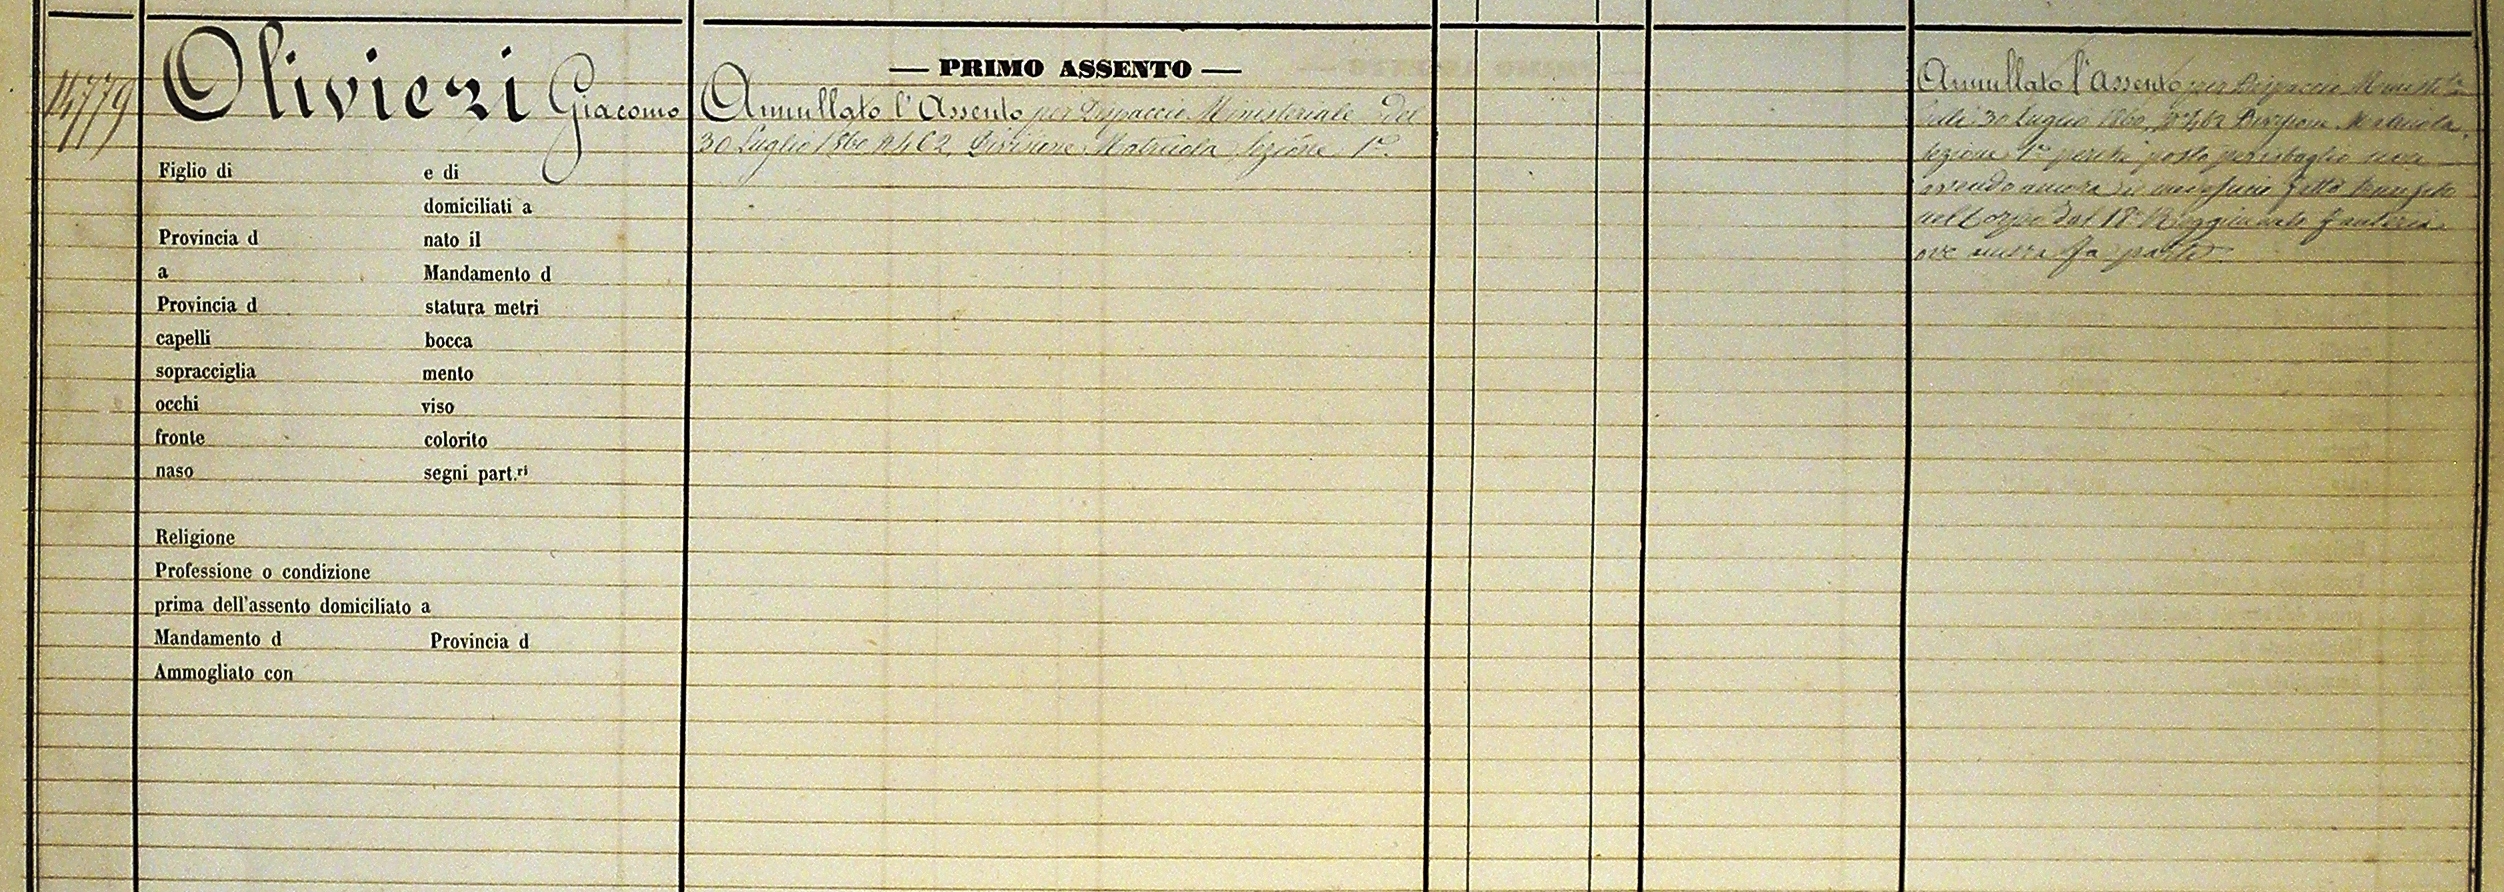 14779
Olivieri Giacomo
Figlio di e di
domiciliati a
Provincia d nato il
a Mandamento d
Provincia d statura metri
capelli bocca
sopracciglia mento
occhi viso
fronte colorito
naso segni part.ri
Religione
Professione o condizione
prima dell'assento domiciliato a
Mandamento d Provincia d
Ammogliato con
— PRIMO ASSENTO —
Annullato l'Assento per Dispaccio Ministeriale del
30 Luglio 1860 N. 462, Divisione Matricola Sezione 1a.
Annullato l'Assento per Dispaccio Ministle
delli 30 Luglio 1860, No 462 Divisione Matricola,
Sezione 1a perchè posto per isbaglio non
avendo ancora fatto transito
nel Corpo dal 18o Reggimento fanteria
ove ancora fa parte